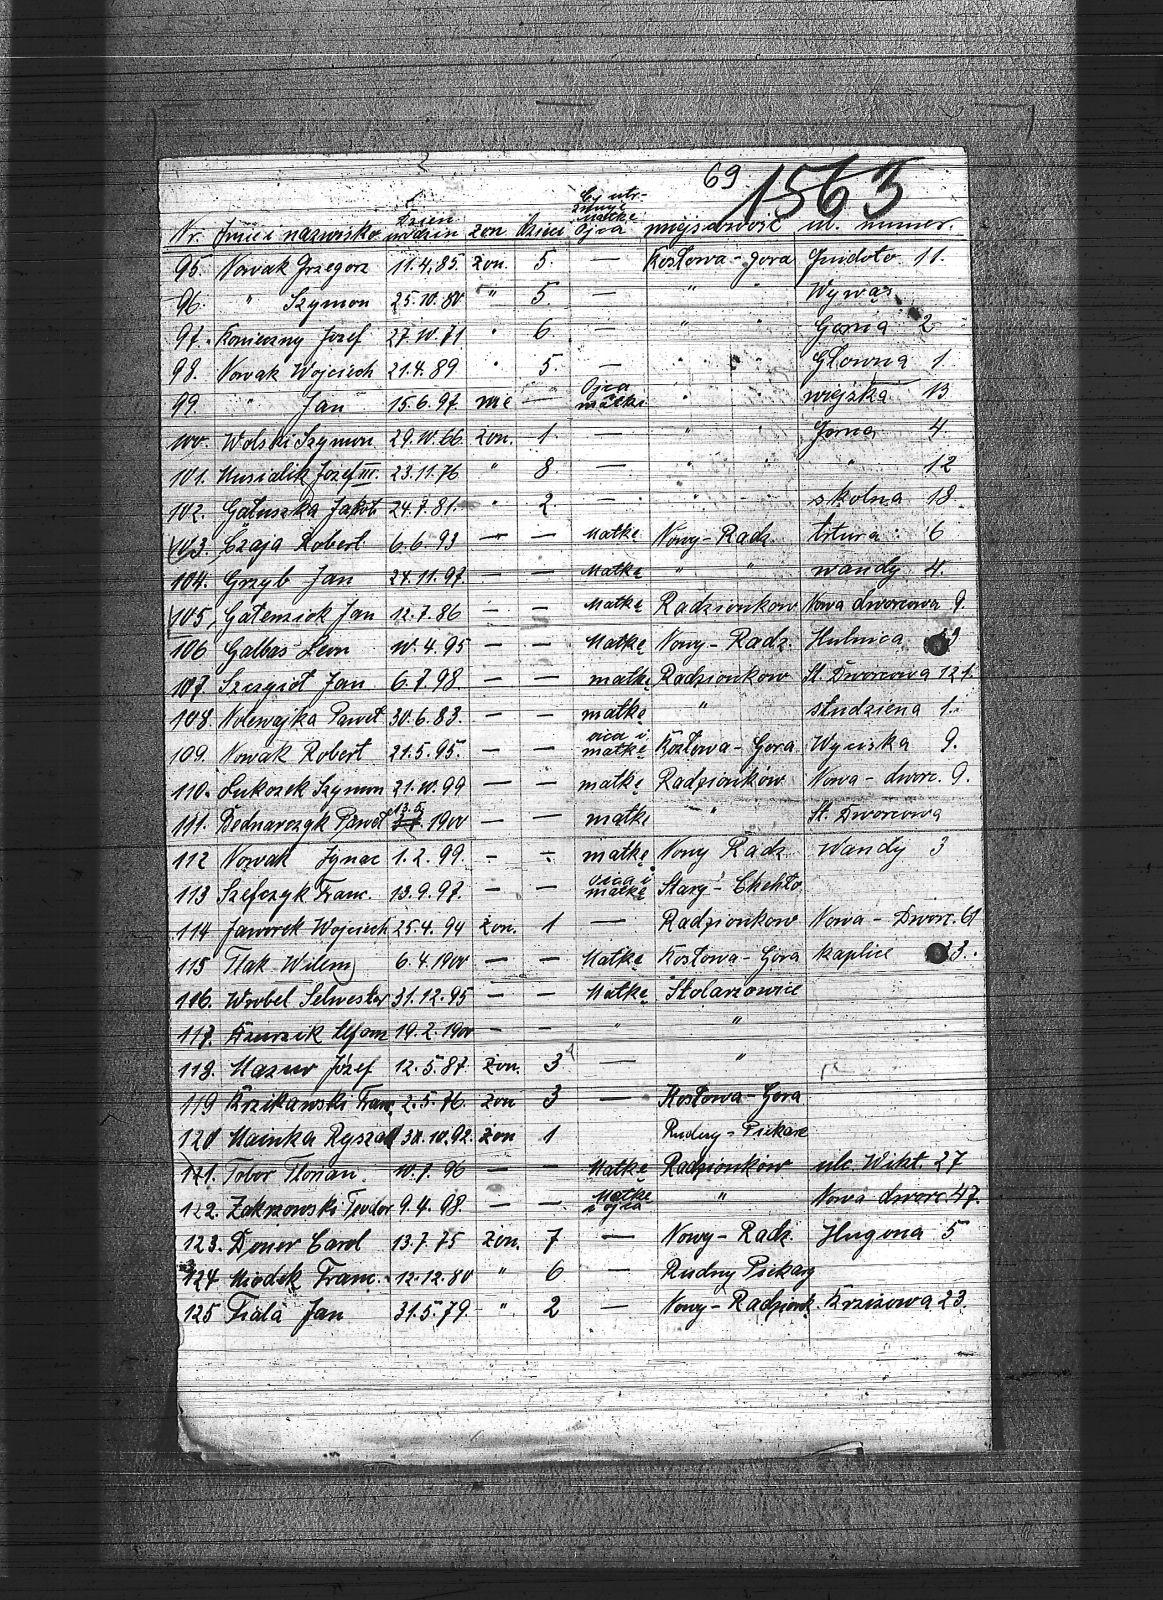 69 1563
Nr. Imię i nazwisko Dzień urodzin żon dzieci Czy utrzymuje matkę ojca miejscowość ul. numer.
95. Nowak Grzegorz 11.4.85. żon. 5. — Kozłowa-Gora Guidoto 11.
96. " Szymon 25.10.80 " 5. — " " Wywoz
97. Konieczny Jozef 27.10.71 " 6. — " " Gorna 2
98. Nowak Wojciech 21.4.89 " 5. — " " Głowna 1.
99. " Jan 15.6.97. nie — Ojca matkę " " wiejska 13.
100. Wolski Szymon 29.10.66. żon. 1. — " " Gorna 4.
101. Musialik Jozef III. 23.11.76 " 8 — " " " 12
102. Gałuszka Jakob 24.7.81. " 2. — " " skolna 18.
103. Czaja Robert 6.6.93 — — Matkę Nowy-Radz. 6
104. Grzyb Jan 24.11.97. — — Matkę " " wandy 4.
105. Jan 12.7.86 — — Matkę Radzionkow Nowa dworcowa 9.
106 Galbas Leon 10.4.95 — — Matkę Nowy-Radz. Hutnica
107. Szczygioł Jan 6.7.98. — — matkę Radzionkow St. Dworcowa 121.
108. Nolewajka Paweł 30.6.83. — — matkę " studziena 1.
109. Nowak Robert 21.5.95. — — ojca i matkę Kozłowa-Gora 9.
110. Lukosek Szymon 21.10.99 — — matkę Radzionków Nowa-dworc. 9.
111. Bednarczyk Paweł 13.5. 1900 — — matkę " St. Dworcowa
112 Nowak Ignac 1.2.99. — — matkę Nowy Radz. Wandy 3
113 Szefczyk Franc. 13.9.97. — — ojca i matkę Stary-Chehło
114 Jaworek Wojciech 25.4.94 żon. 1 — Radzionkow Nowa-Dworc. 61
115 Tlak Wilem 6.4.1900 — — Matkę Kozłowa-Gora kaplice 33.
116. Wrobel Selwester 31.12.95 — — Matkę Stolarzowice
117. Alfons 19.2.1900 — — " "
118. Mazur Józef 12.5.87. żon. 3 — "
119 Krzikawski Franc. 2.5.76. żon 3 — Kozłowa-Gora
120 Mainka Ryszard 30.10.92. żon 1 Rudny-Piekare
121. Tobor Florian. 10.7.96 — — Matkę Radzionków ulc. Wikt. 27
122. Zakrzowski Teodor 9.4.98. — — Matkę i ojca " Nowa dworc. 47.
123. Doner Carol 13.7.75 żon. 7 — Nowy-Radz. Hugona 5
124 Miodek Franc. 12.12.80 " 6 — Rudny Piekary
125 Fiala Jan 31.5.79. " 2 — Nowy-Radzionk. Krziżowa 23.